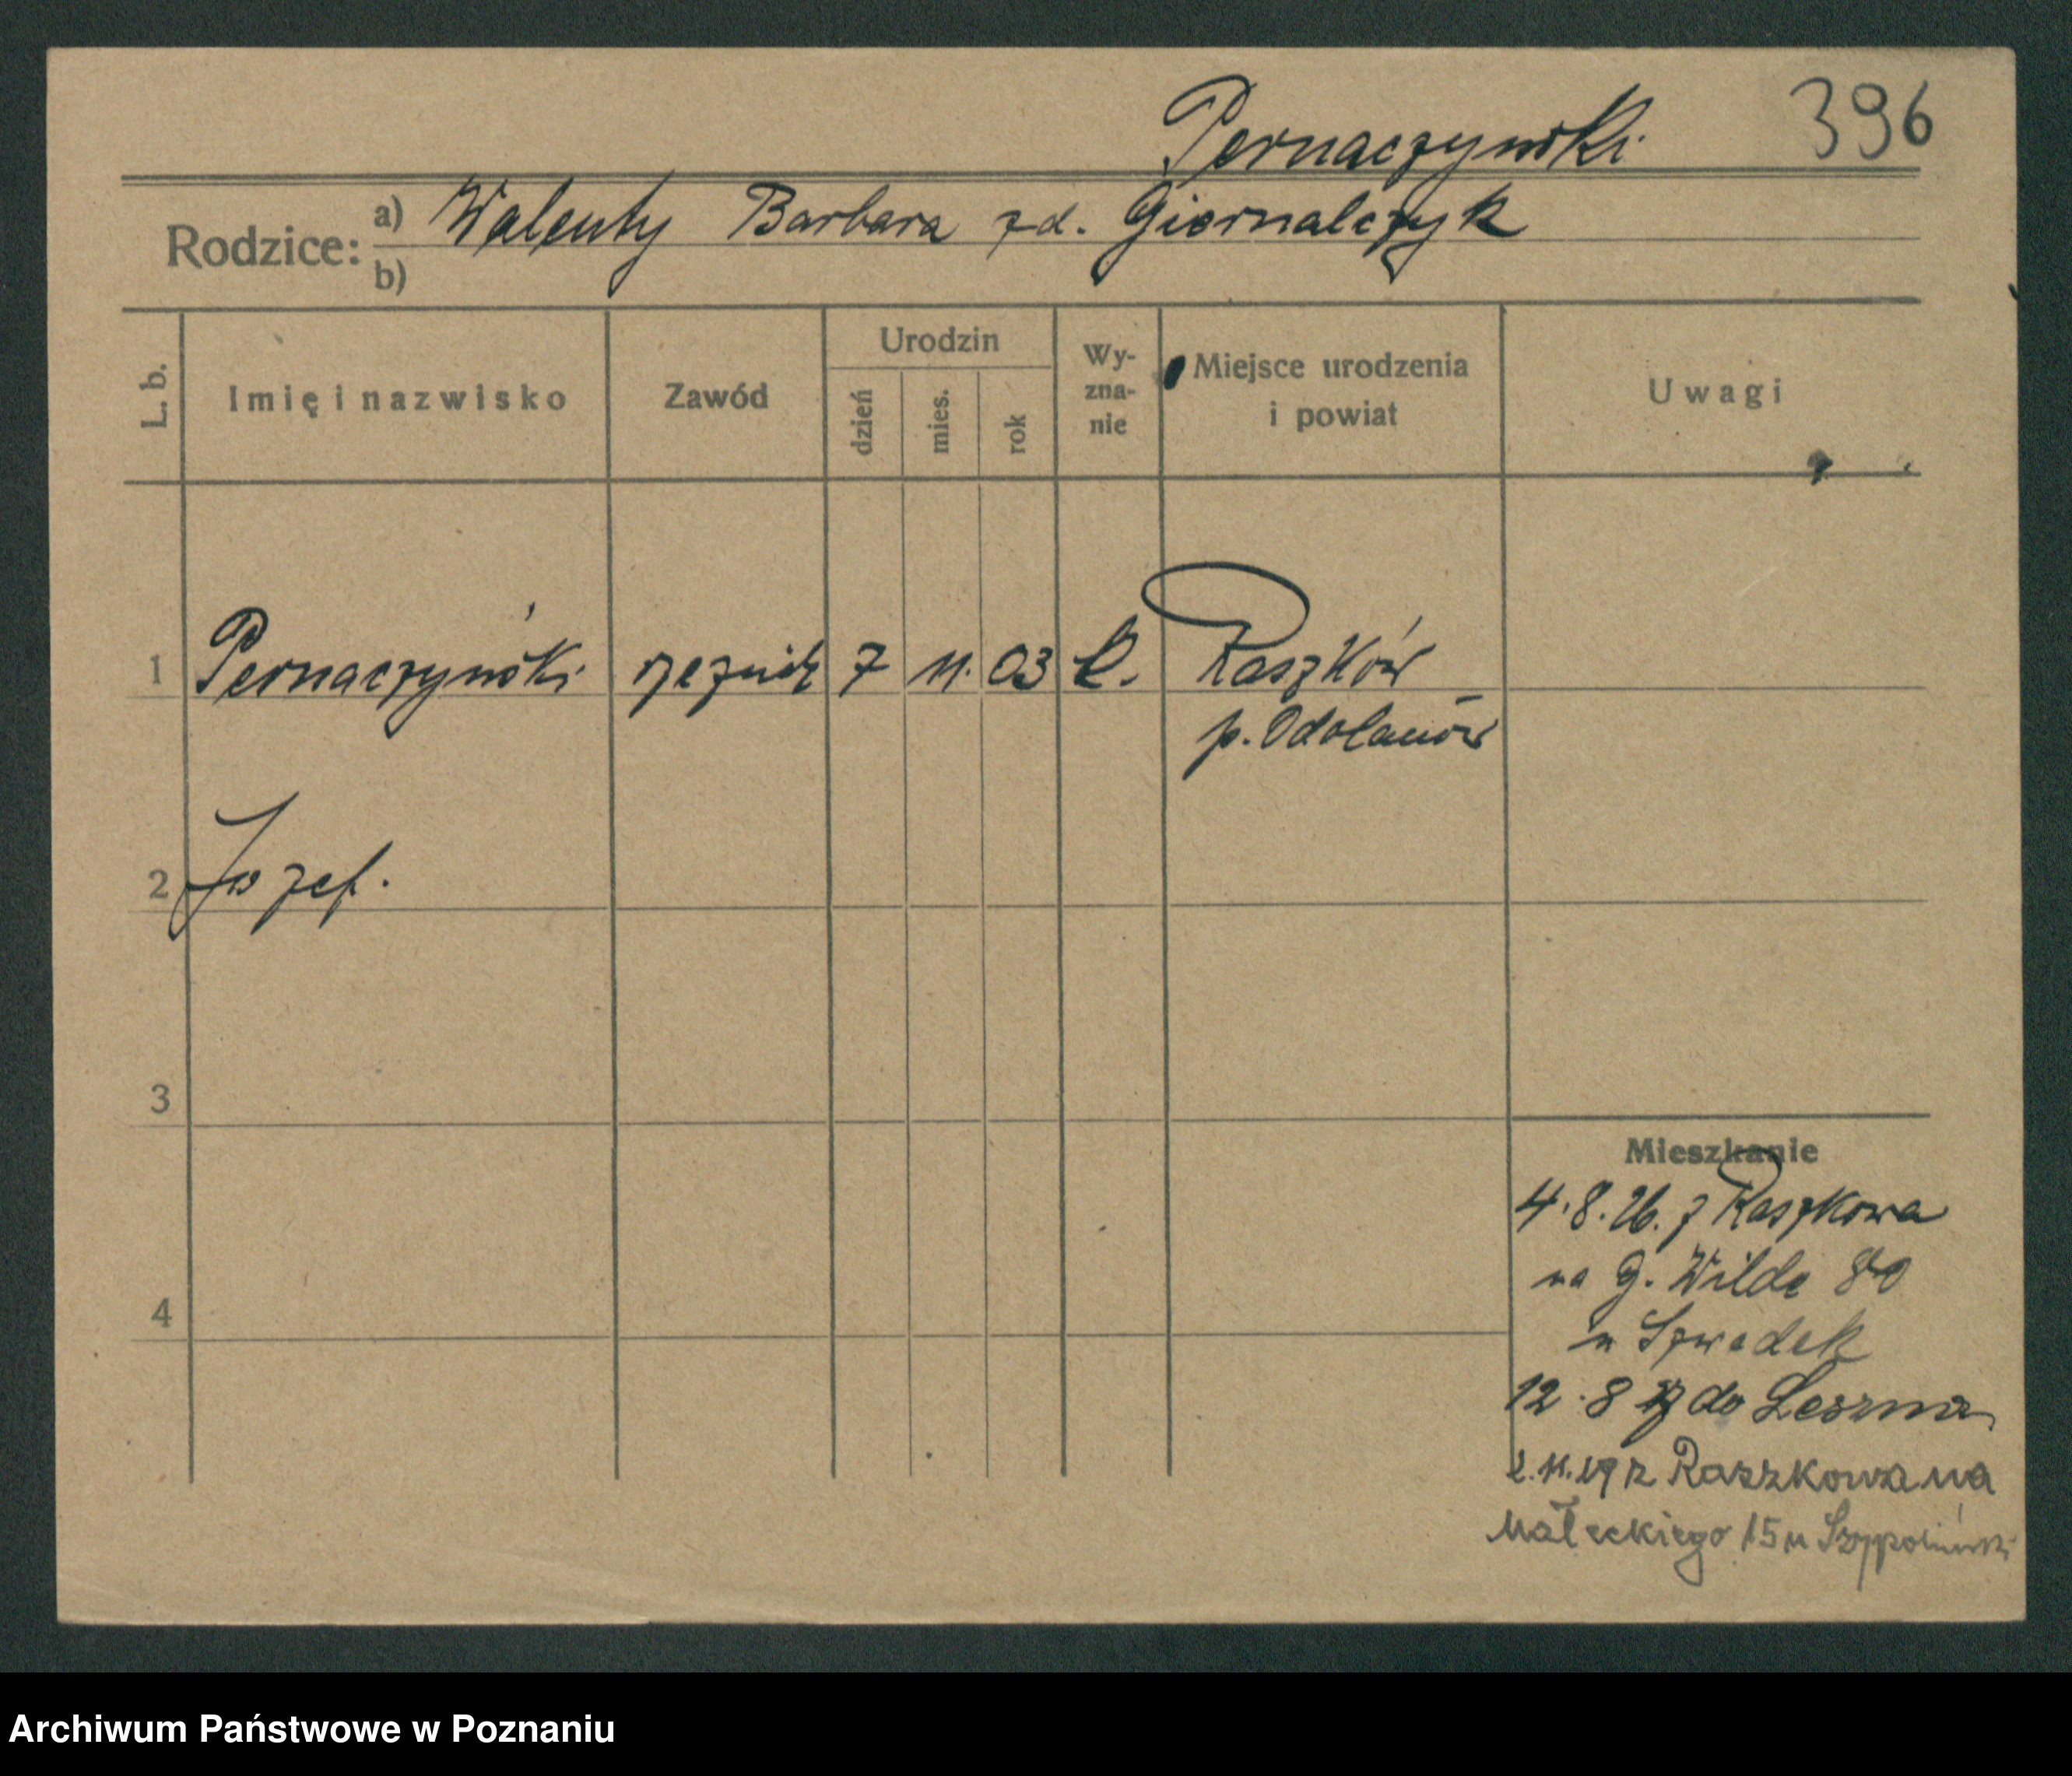 Pernaczyński 396
Rodzice: a) Walenty Barbara zd. Giernalczyk
b)
L. b. Imię i nazwisko Zawód Urodzin dzień mies. rok Wyzna-nie Miejsce urodzenia i powiat Uwagi
1 Pernaczyński rzeźnik 7 11. 03 k. Raszków
p. Odolanów
2 Józef.
3
Mieszkanie
4.8.26. z Raszkowa
na G. Wilde 80
4
u Szwadek
12.8 do Leszna
2.11.29 z Raszkowa na
Małeckiego 15 u
Archiwum Państwowe w Poznaniu